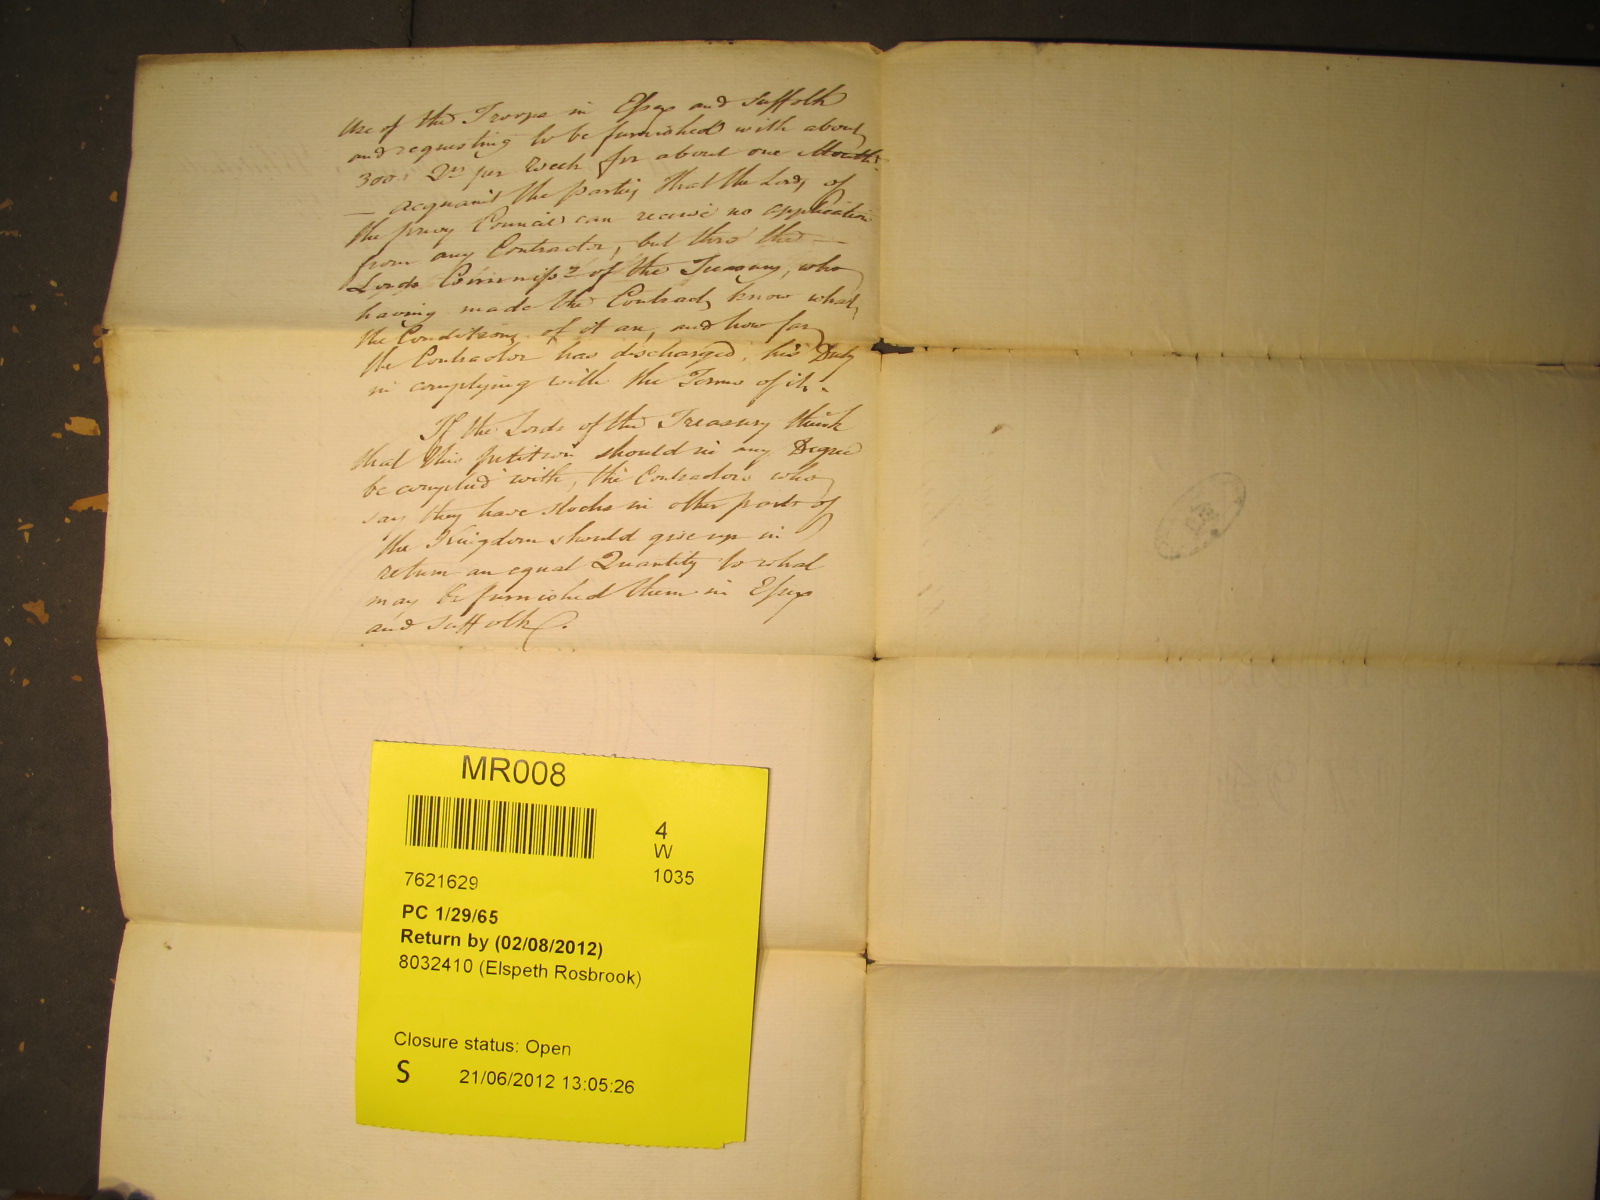 Use of the Troops in Essex and Suffolk
and requesting to be furnished with about
300 Qrs per Week for about one Month.
— acquaint the parties that the Lords of
the privy Council can receive no application
from any Contractor, but thro' the —
Lords Commissrs of the Treasury, who
having made the Contract, know what
the Conditions of it are, and how far
the Contractor has discharged his Duty
in complying with the Terms of it. -
If the Lords of the Treasury think
that this petition should in any Degree
be complied with, the Contractors who
say they have Stocks in other parts of
the Kingdom should give up in
return an equal Quantity to what
may be furnished them in Essex
and Suffolk.
MR008
4
W
1035
7621629
PC 1/29/65
Return by (02/08/2012)
8032410 (Elspeth Rosbrook)
Closure status: Open
S 21/06/2012 13:05:26